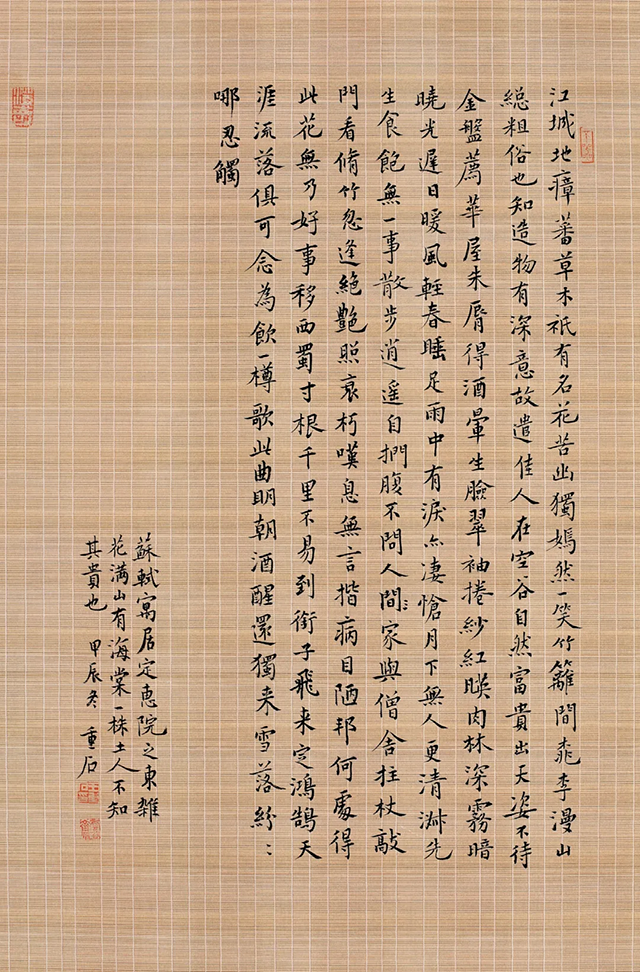 江城地瘴蕃草木祇有名花苦幽獨嫣然一笑竹籬間桃李漫山
総粗俗也知造物有深意故遣佳人在空谷自然富貴出天姿不待
金盤薦華屋朱脣得酒暈生臉翠袖捲紗紅暎肉林深霧暗
曉光遲日暖風輕春睡足雨中有淚亦凄愴月下無人更清淑先
生食飽無一事散步逍遙自捫腹不問人間：家與僧舍拄杖敲
門看脩竹忽逢絕艷照衰朽嘆息無言揩病目陋邦何處得
此花無乃好事移西蜀寸根千里不易到銜子飛来定鴻鵠天
涯流落俱可念為飲一樽歌此曲明朝酒醒還獨来雪落紛：
哪忍觸
蘇軾寓居定惠院之東雜
花滿山有海棠一株土人不知
其貴也 甲辰冬 重石